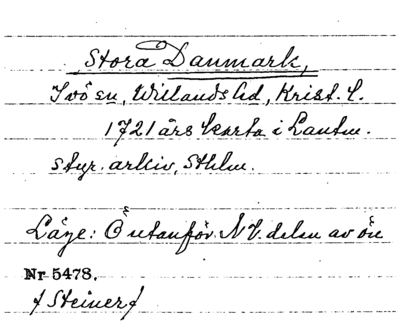 Stora Danmark,
Ivö sn, Willands hd, Krist. l.
1721 års karta i Lantm.
styr. arkiv, Sthlm.
Läge: Ö utanför NV. delen av ön
Nr 5478.
/Steiner/